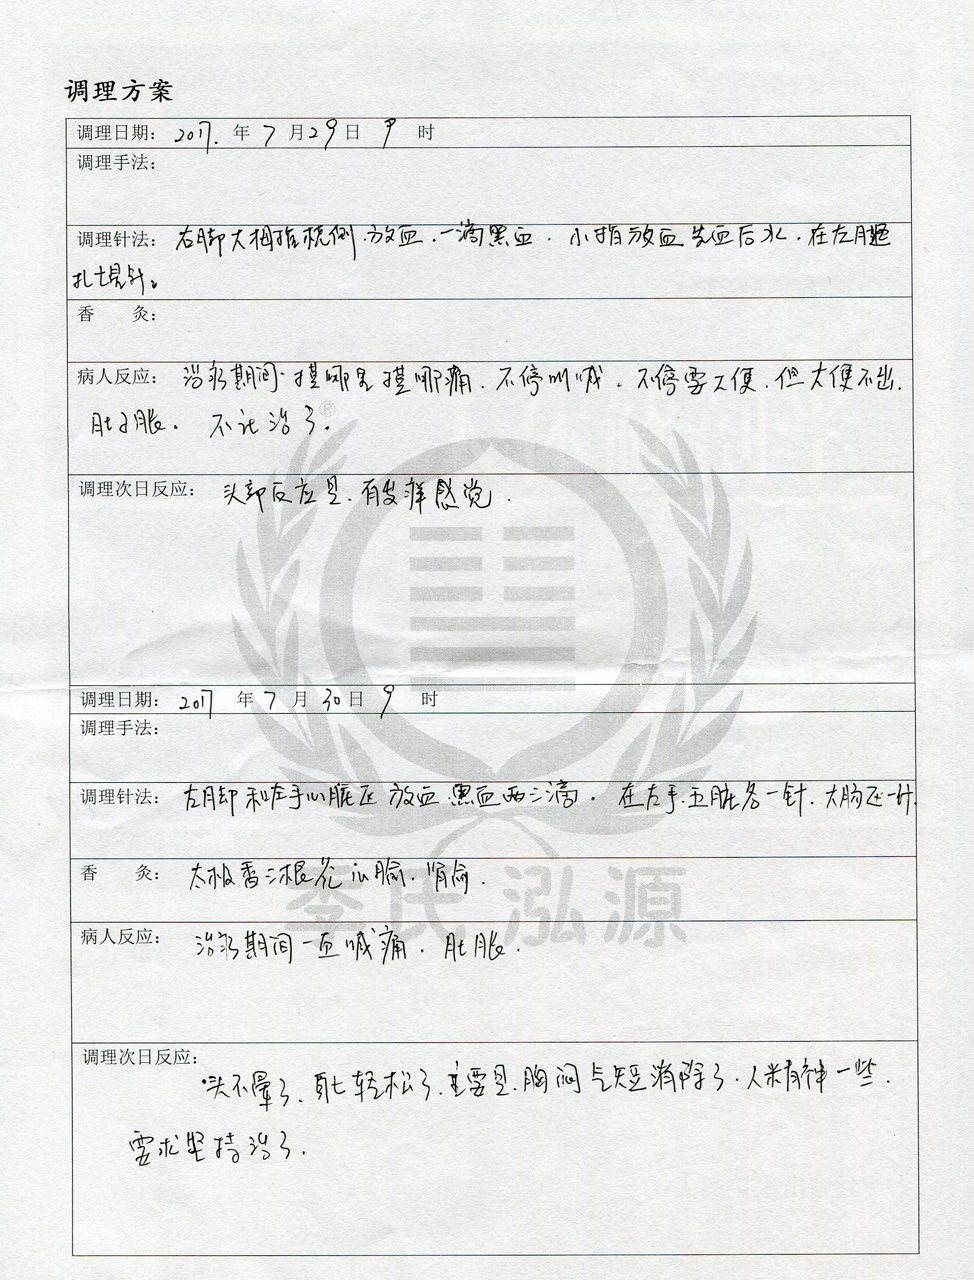 调理方案
调理日期： 2017. 年 7 月 29 日 9 时
调理手法：
调理针法： 右脚大拇指桡侧.放血.一滴黑血.小指放血先血后水.在左腿
扎提针。
香 灸：
病人反应： 治疗期间.摸哪里摸哪痛.不停叫喊.不停要大便.但大便不出.
肚子胀. 不让治了.
®
调理次日反应： 头部反应是.有发痒感觉.
调理日期： 2017 年 7 月 30 日 9 时
调理手法：
调理针法： 左脚和左手心脏区放血.黑血两三滴.在左手.五脏各一针.大肠区一针.
香 灸： 太极香三根灸心腧.肾俞.
李氏泓源
病人反应： 治疗期间一直喊痛.肚胀.
调理次日反应：
头不晕了. 轻松了.主要是.胸闷气短消除了.人米有神一些.
要求坚持治了.